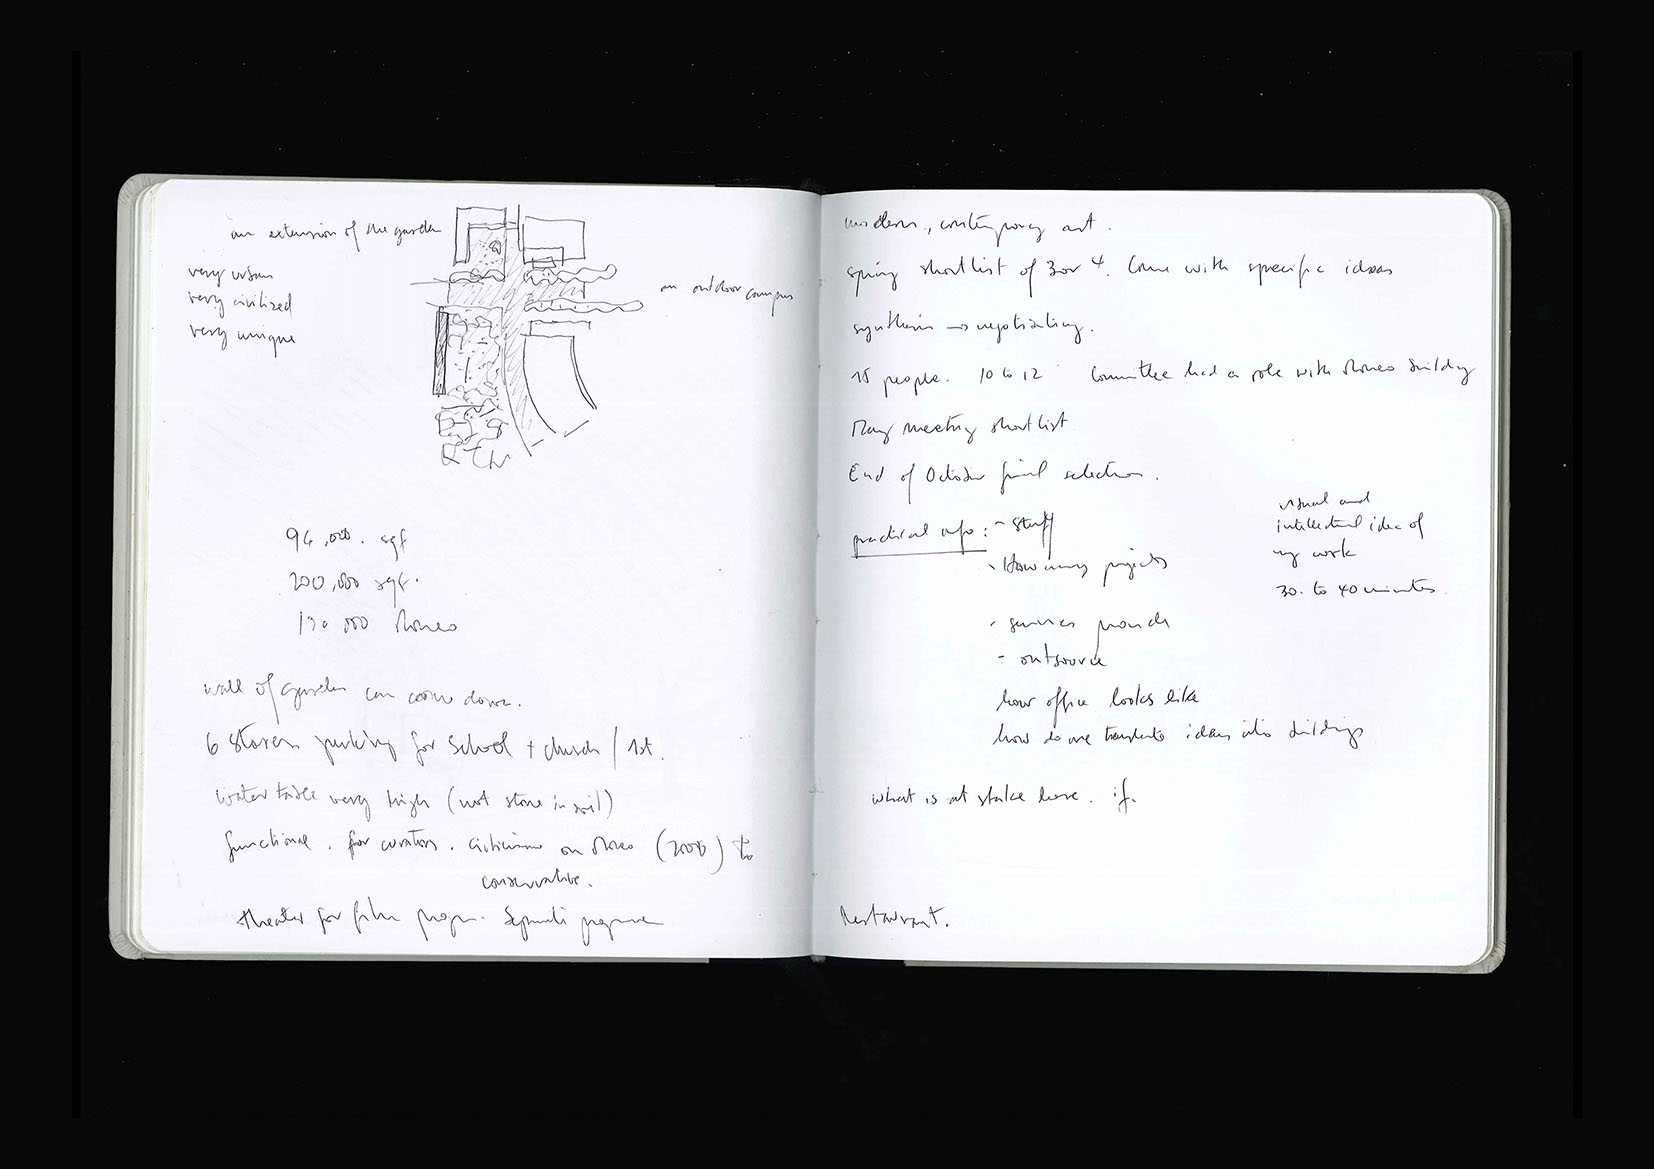 an extension of the garden
very urban
very civilized
very unique
an outdoor campus
96,000. sqf
200,000 sqf.
130 000 Moneo
wall of garden can come down.
6 Stories parking for School + church / 1st.
water table very high (not stone in soil)
functional. for curators. criticism on Moneo (2000) to
conservative.
theater for film program. Separate programme
modern, contemporary art.
spring shortlist of 3 or 4. Come with specific ideas
synthesis → negotiating.
15 people. 10 to 12 Committee had a role with Moneo building
May meeting shortlist
End of October final selection.
practical info: - Staff
- How many projects
- services provide
- outsource
how office looks like
how do we translate ideas into buildings
visual and
intellectual idea of
my work
30. to 40 minutes.
what is at stake here. if.
Restaurant.